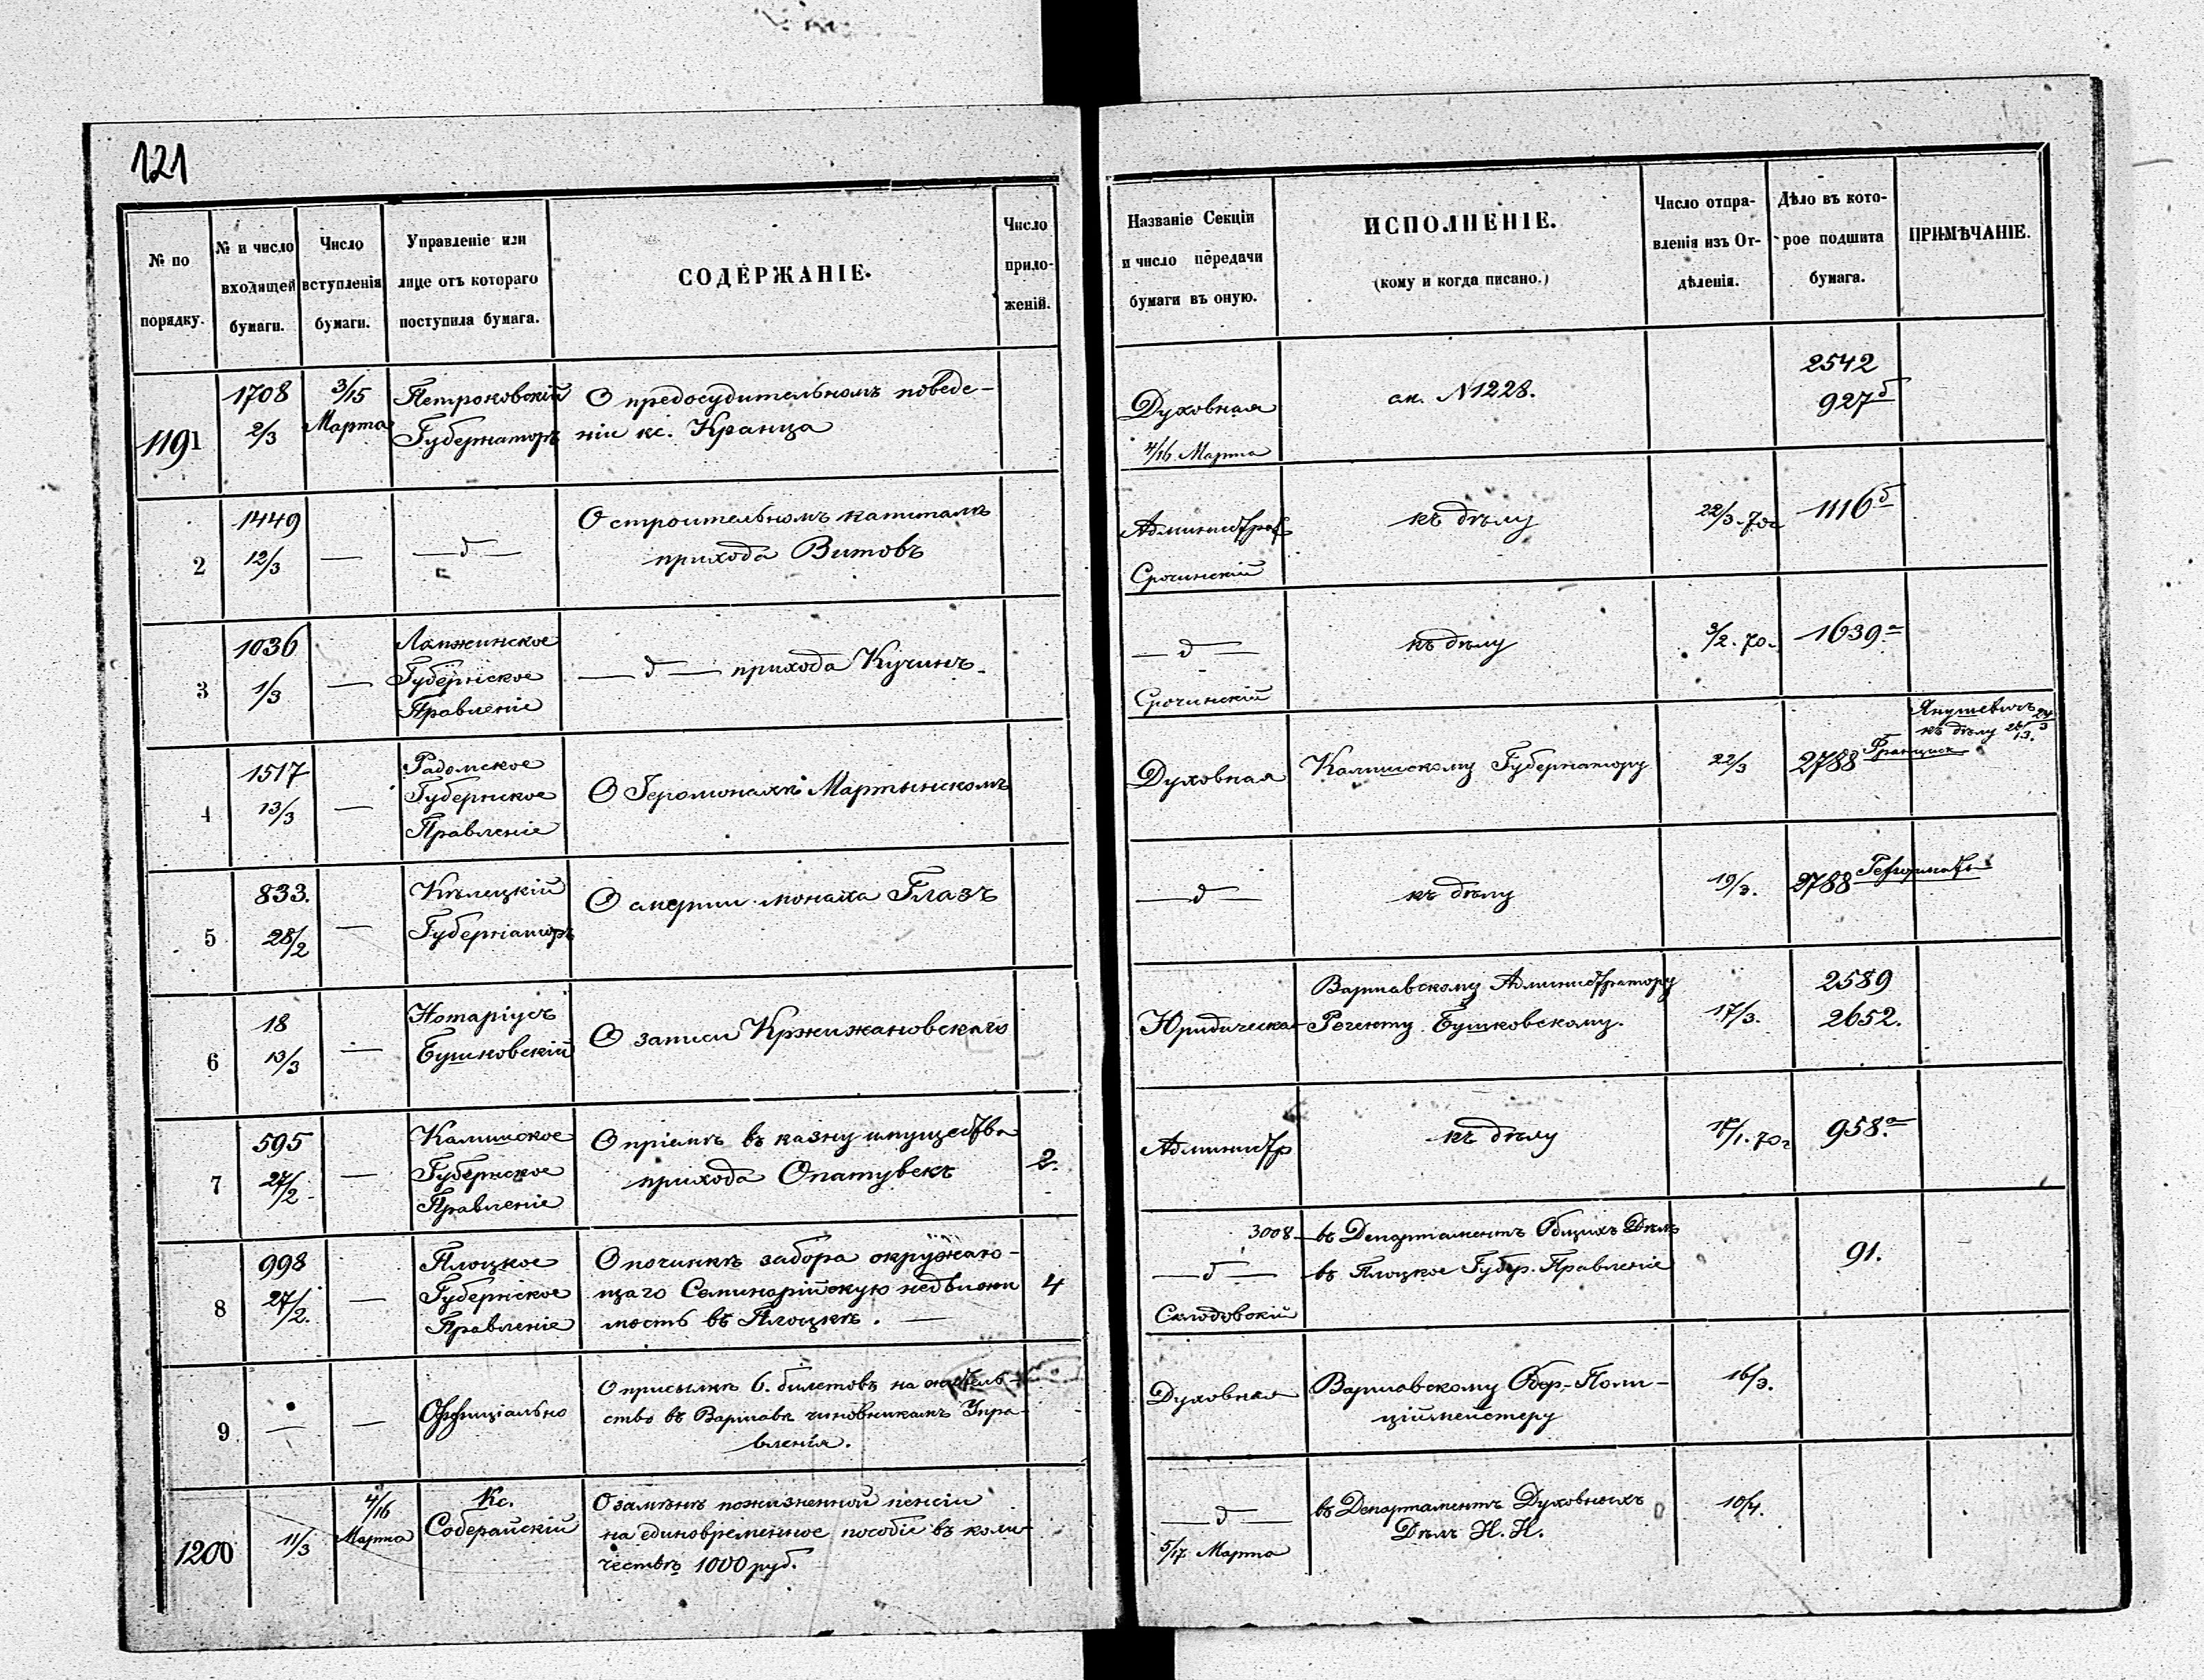 121
№ по порядку.
№ и число входящей бумаги.
Число вступленія бумаги.
Управленіе или лице отъ котораго поступила бумага.
СОДЕРЖАНІЕ.
Число приложеній.
Названіе Секціи и число передачи бумаги въ оную.
ИСПОЛНЕНІЕ.
(кому и когда писано.)
Число отправленія изъ Отдѣленія.
Дѣло въ которое подшита бумага.
ПРИМѢЧАНІЕ.
1191
1708
2/3
3/15
Марта
Петроковскій
Губернаторъ
О предосудительномъ поведе-
ніи кс. Кранца
Духовная
4/16 Марта
ак. №1228.
2542
927б
2
1449
12/3
—
—д—
О строительномъ капиталѣ
прихода Витовъ
Администрат
Срочинскій
къ дѣлу
22/3.70г
1116б
3
1036
1/3
—
Ломжинское
Губернское
Правленіе
—д— прихода Кучинъ.
—д—
Срочинскій
къ дѣлу
3/2.70г
1639а
4
1517
13/3
—
Радомское
Губернское
Правленіе
О Іеромонахѣ Мартынскомъ
Духовная
Калишскому Губернатору
22/3
2788 Францишк
Янушевичъ
къ дѣлу
5
833.
28/2
—
Кѣлецкій
Губернаторъ
О смерти монаха Глазъ
—д—
къ дѣлу
19/3.
2788 Реформаты
6
18
13/3
—
Нотаріусъ
Бушковскій
О записи Кржижановскаго
Юридическая
Варшавскому Администратору
Регенту Бушковскому.
17/3.
2589
2652.
7
595
27/2
—
Калишское
Губернское
Правленіе
О пріемѣ въ казну имущества
прихода Опатувекъ
2.
Администр
къ дѣлу
/1.70г
958.а
8
998
27/2.
—
Плоцкое
Губернское
Правленіе
О починкѣ забора окружаю-
щаго Семинарійскую недвижи
мость въ Плоцкѣ. —
4
3008
—д—
Склодовскій
въ Департаментъ Общихъ Дѣлъ
въ Плоцкое Губер. Правленіе
91.
9
—
—
Оффиціально
О присылкѣ 6. билетовъ на житель-
ство въ Варшавѣ чиновникамъ Упра-
вленія.
Духовная
Варшавскому Обер.-Поли-
ціймейстеру
16/3.
1200
11/3
4/16
Марта
Кс.
Соберайскій
О замѣнѣ пожизненной пенсіи
на единовременное пособіе въ коли-
чествѣ 1000 руб.
—д—
5/17 Марта
въ Департаментъ Духовныхъ
Дѣлъ И. И.
10/4.